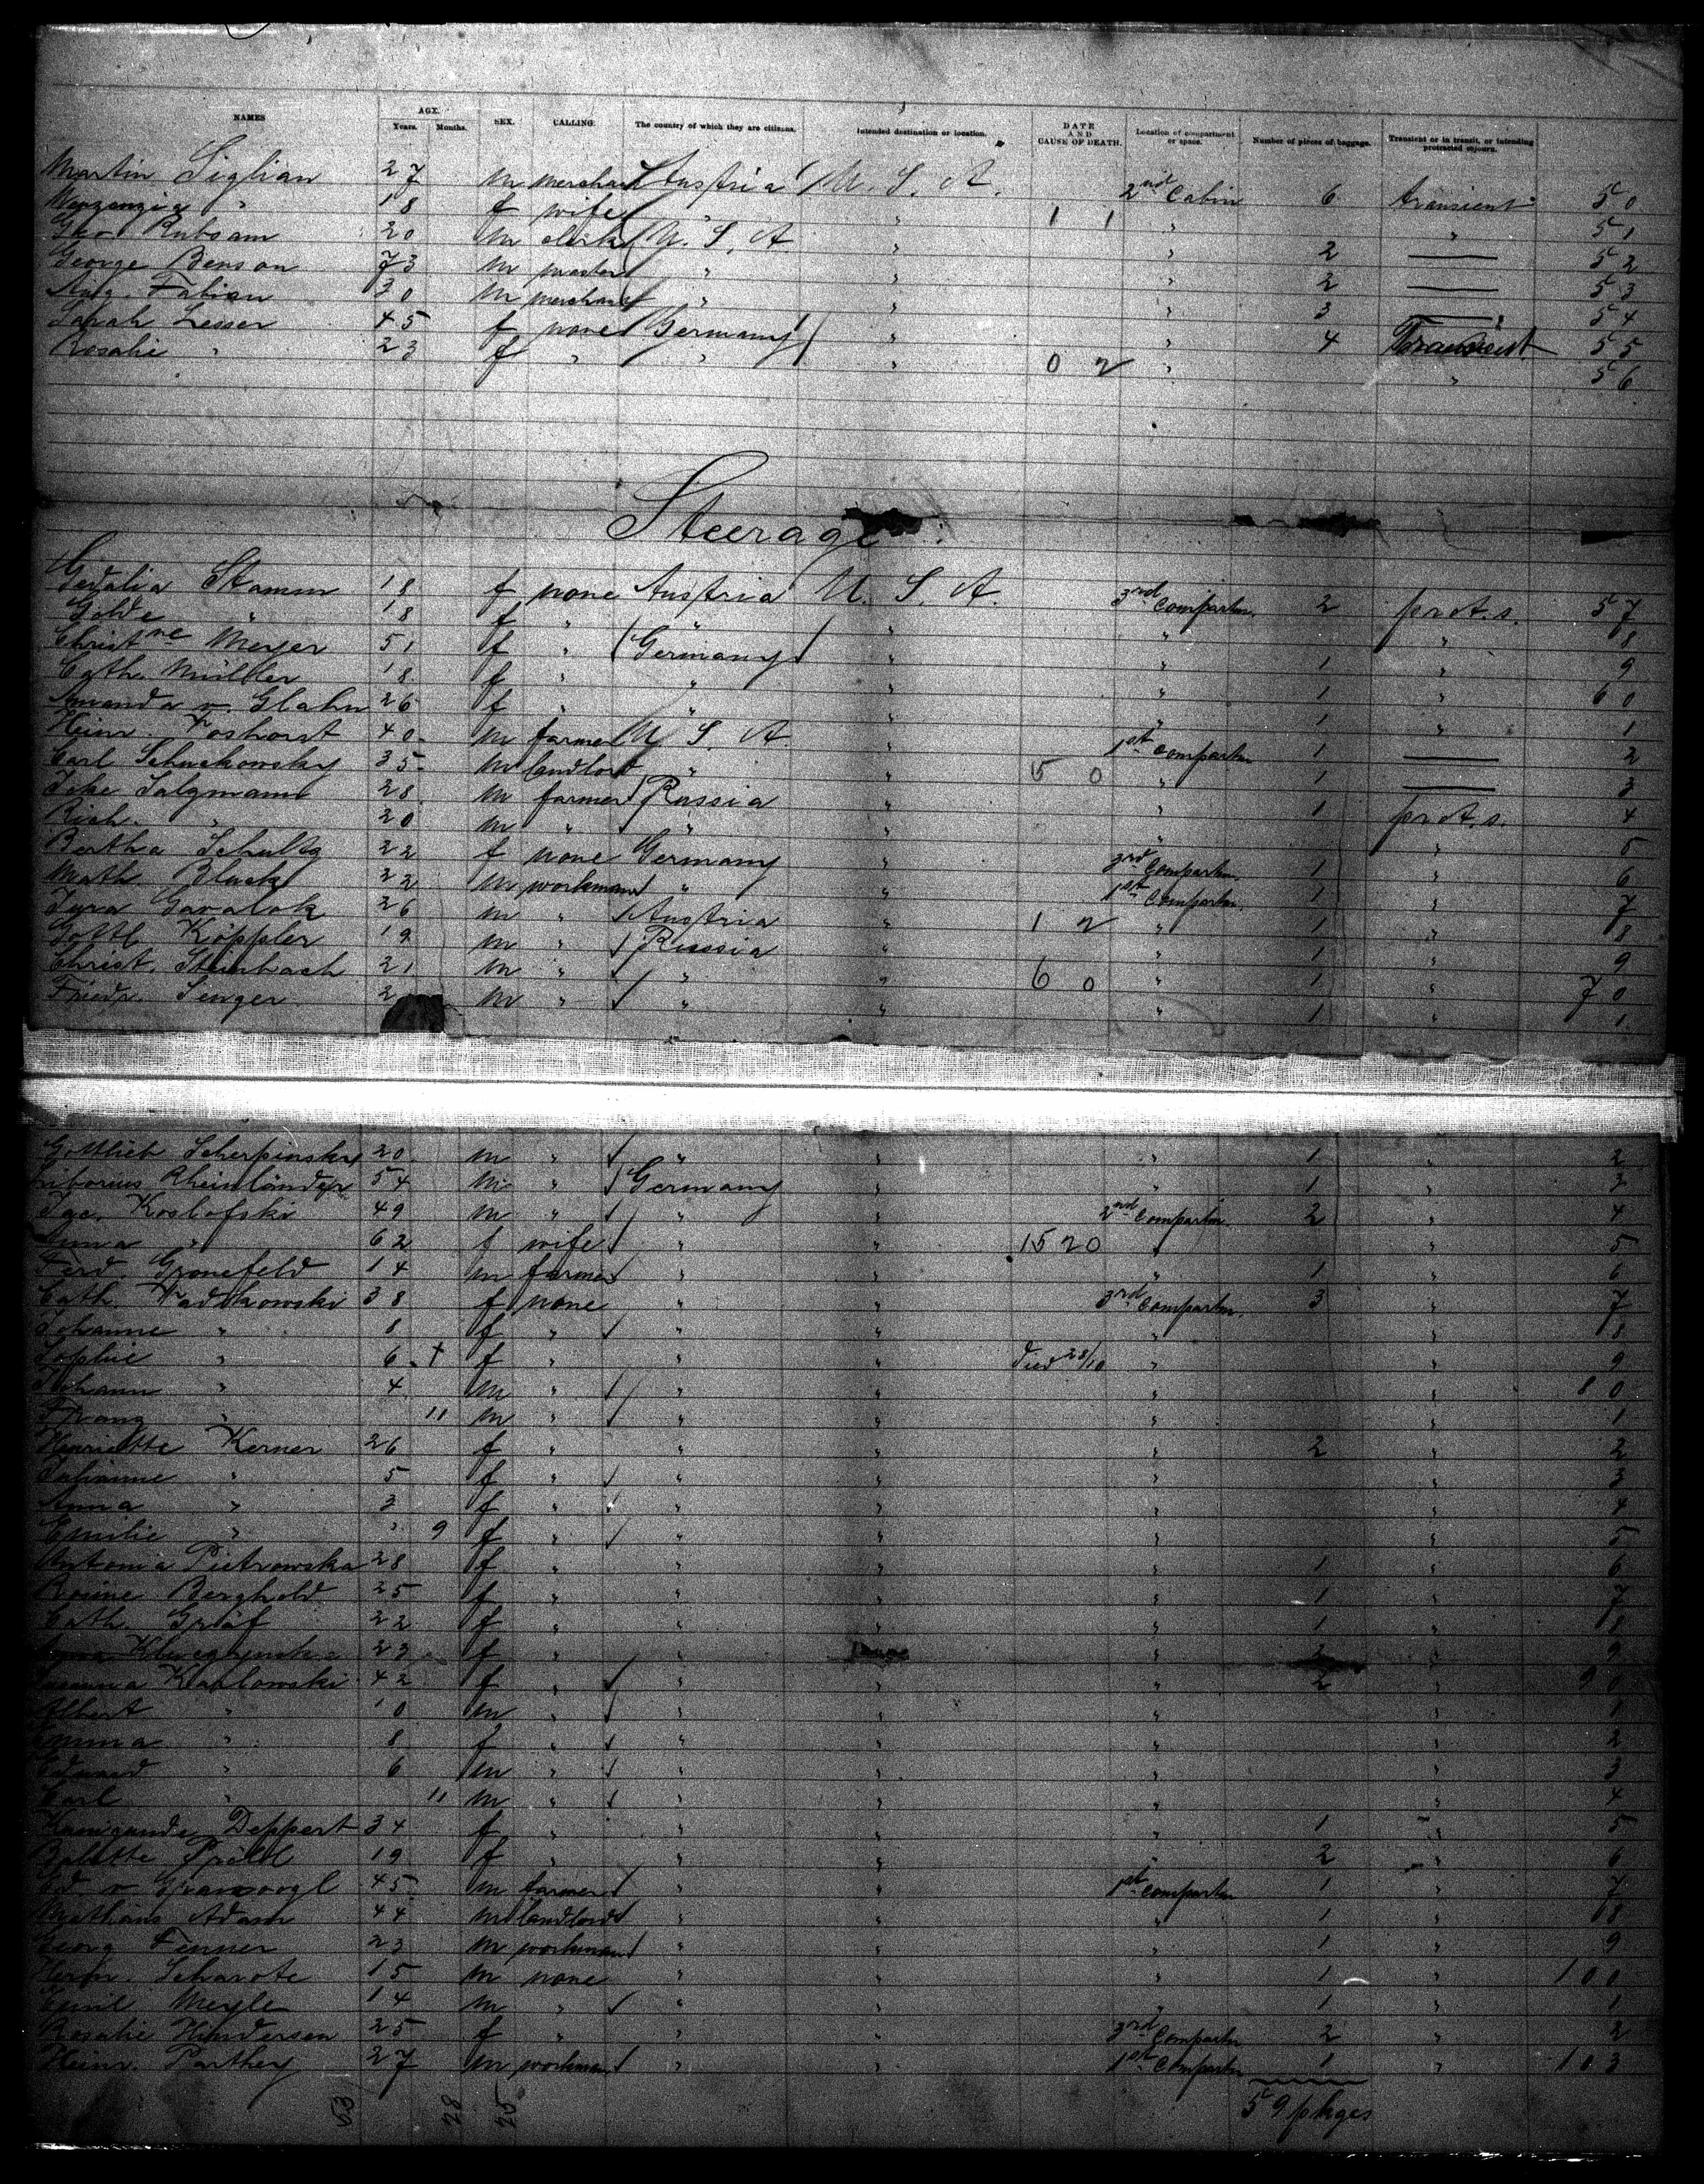 NAMES AGE. Years. Months. SEX. CALLING. The country of which they are citizens. Intended destination or location. DATE AND CAUSE OF DEATH. Location of compartment or space. Number of pieces of baggage. Transient or in transit, or intending protracted sojourn.
Martin Siglian 27 m merchant Austria U. S. A. 2nd Cabin 6 transient 50
" 18 f wife " " 1 1 " " 51
Geo Rubsam 20 m clerk U. S. A " " 2 — 52
George Benson 73 m " " " 2 — 53
Aug. Fabian 30 m merchant " " " 3 — 54
Sarah Lesser 45 f none Germany " " 4 Transient 55
Rosalie " 23 f " " " 0 2 " " 56
Steerage
Gedalia Stamm 18 f none Austria U. S. A. 3rd Compartm. 2 prot. s. 57
Golde " 18 f " " " " " 8
Christne Meyer 51 f " Germany " " 1 " 9
Cath. Müller 18 f " " " " 1 " 60
Amanda v. Glahn 26 f " " " " 1 " 1
Heinr. Foshorst 40 m farmer U. S. A. " 1st Compartm 1 — 2
Carl Schuckowsky 35 m landlord " " 5 0 " 1 — 3
Salzmann 28 m farmer Russia " " 1 prot. s. 4
Rich. " 20 m " " " " " 5
Bertha Schultz 22 f none Germany " 3rd Compartm. 1 " 6
Math. Black 22 m workman " " 1st Compartm. 1 " 7
Gavalok 26 m " Austria " 1 2 " 1 " 8
Gottl Köppler 19 m " Russia " " 1 " 9
Christ. Steinbach 21 m " " " 6 0 " 1 " 70
Friedr. Senger 2 m " " " " 1 " 1
Gottlieb Scherpinsky 20 m " " " " 1 " 2
Liborius Rheinländer 54 m " Germany " " 1 " 3
Koslofski 49 m " " " 2nd Compartm. 2 " 4
Anna " 62 f wife " " 1520 " " 5
Ferd. Gronefeld 14 m farmer " " " 1 " 6
Cath. Radtkowski 38 f none " " 3rd Compartm. 3 " 7
Johanne " 8 f " " " " " 8
Sophie " 6 + f " " " died 28/10 " " 9
Johann " 4 m " " " " " 80
Franz " 11 m " " " " " 1
Henriette Kerner 26 f " " " " 2 " 2
Julianne " 5 f " " " " " 3
Anna " 3 f " " " " " 4
Emilie " " 9 f " " " " " 5
Antonia Pietrowska 28 f " " " " 1 " 6
Rosine Berghold 25 f " " " " 1 " 7
Cath. Gräf 22 f " " " " 1 " 8
23 f " " " " 2 " 9
Karlowski 42 f " " " " 2 " 90
Albert " 10 m " " " " " 1
Emma " 8 f " " " " " 2
Eduard " 6 m " " " " " 3
Carl " 11 m " " " " " 4
Deppert 34 f " " " " 1 " 5
19 f " " " " 2 " 6
Ed v 45 m farmer " " 1st Compartm 1 " 7
Mathäus Adam 44 m landlord " " " 1 " 8
Georg Fenner 23 m workman " " " 1 " 9
Herm. Scharote 15 m none " " " 1 " 100
Emil Meyle 14 m " " " " 1 " 1
Rosalie Hindersen 25 f " " " 3rd Compartm 2 " 2
Heinr. Parthey 27 m workman " " 1st Compartm 1 " 103
53 28 25 59 pkges